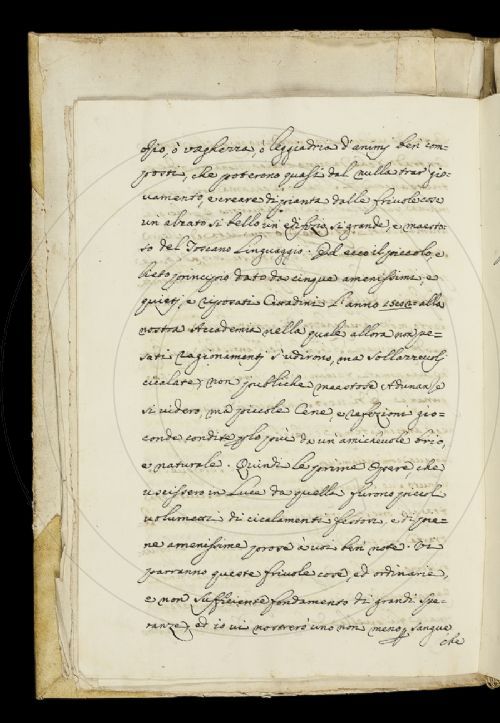 osio, ò vaghezza, ò leggiadria d'animj ben com=
posti, che poterono quasi dal nulla trar gio=
uamento, e creare di pianta dalle friuole cose
un alzato sì bello un edifizio sì grande, e maesto=
so del Toscano Linguaggio. ecco il piccolo, e
lieto principio dato da cinque amenissimi, e
quietj, e riposati Cittadini L'anno alla
nostra Accademia, nella quale allora non pe=
sati ragionamentj s'udirono, ma sollazzeuoli
cicalate, non publiche maestose Adunanze
si videro, ma piccole Cene, e refezioni gio=
conde condite p lo più da un amicheuole brio,
e naturale. Quindi le prime Opere, che
uscissero in Luce da quella furono piccoli
uolumetti di cicalamenti festosi, e di pie=
ne amenissime prose à voi ben note. Vi
parranno queste friuole cose, ed ordinarie,
e non sufficiente fondamento di grandi spe=
ranze, ed io ui mostrerò uno non meno sangue
che